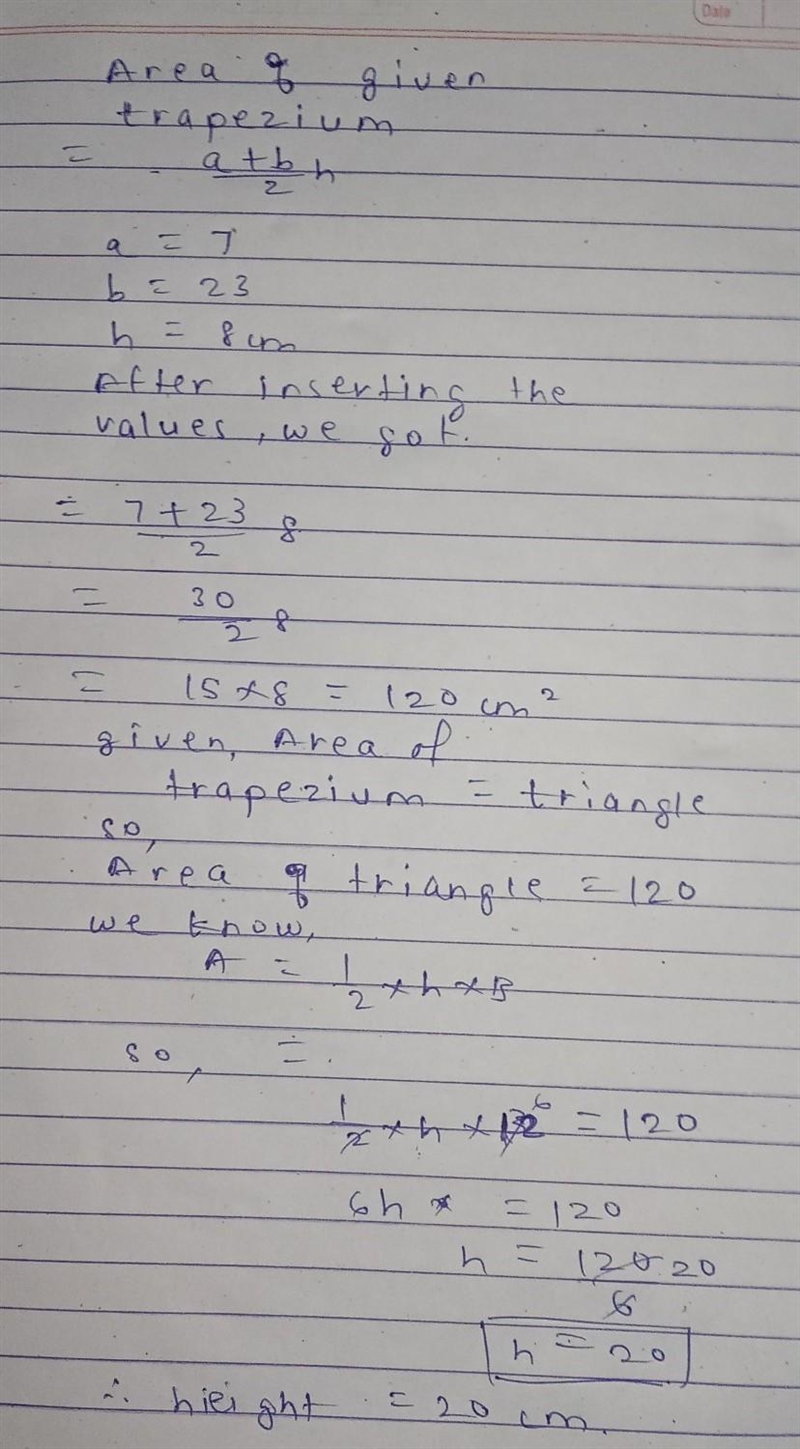 Date
Area of given
trapezium
= a+b/2 h
a = 7
b = 23
h = 8cm
After inserting the
values, we got.
= 7+23/2 8
= 30/2 8
= 15×8 = 120 cm²
given, Area of
trapezium = triangle
so,
Area of triangle = 120
we know,
A = 1/2 × h × B
so, =
1/2 × h × 12 6 = 120
6h × = 120
h = 120 20
6
h = 20
∴ hieight = 20 cm.